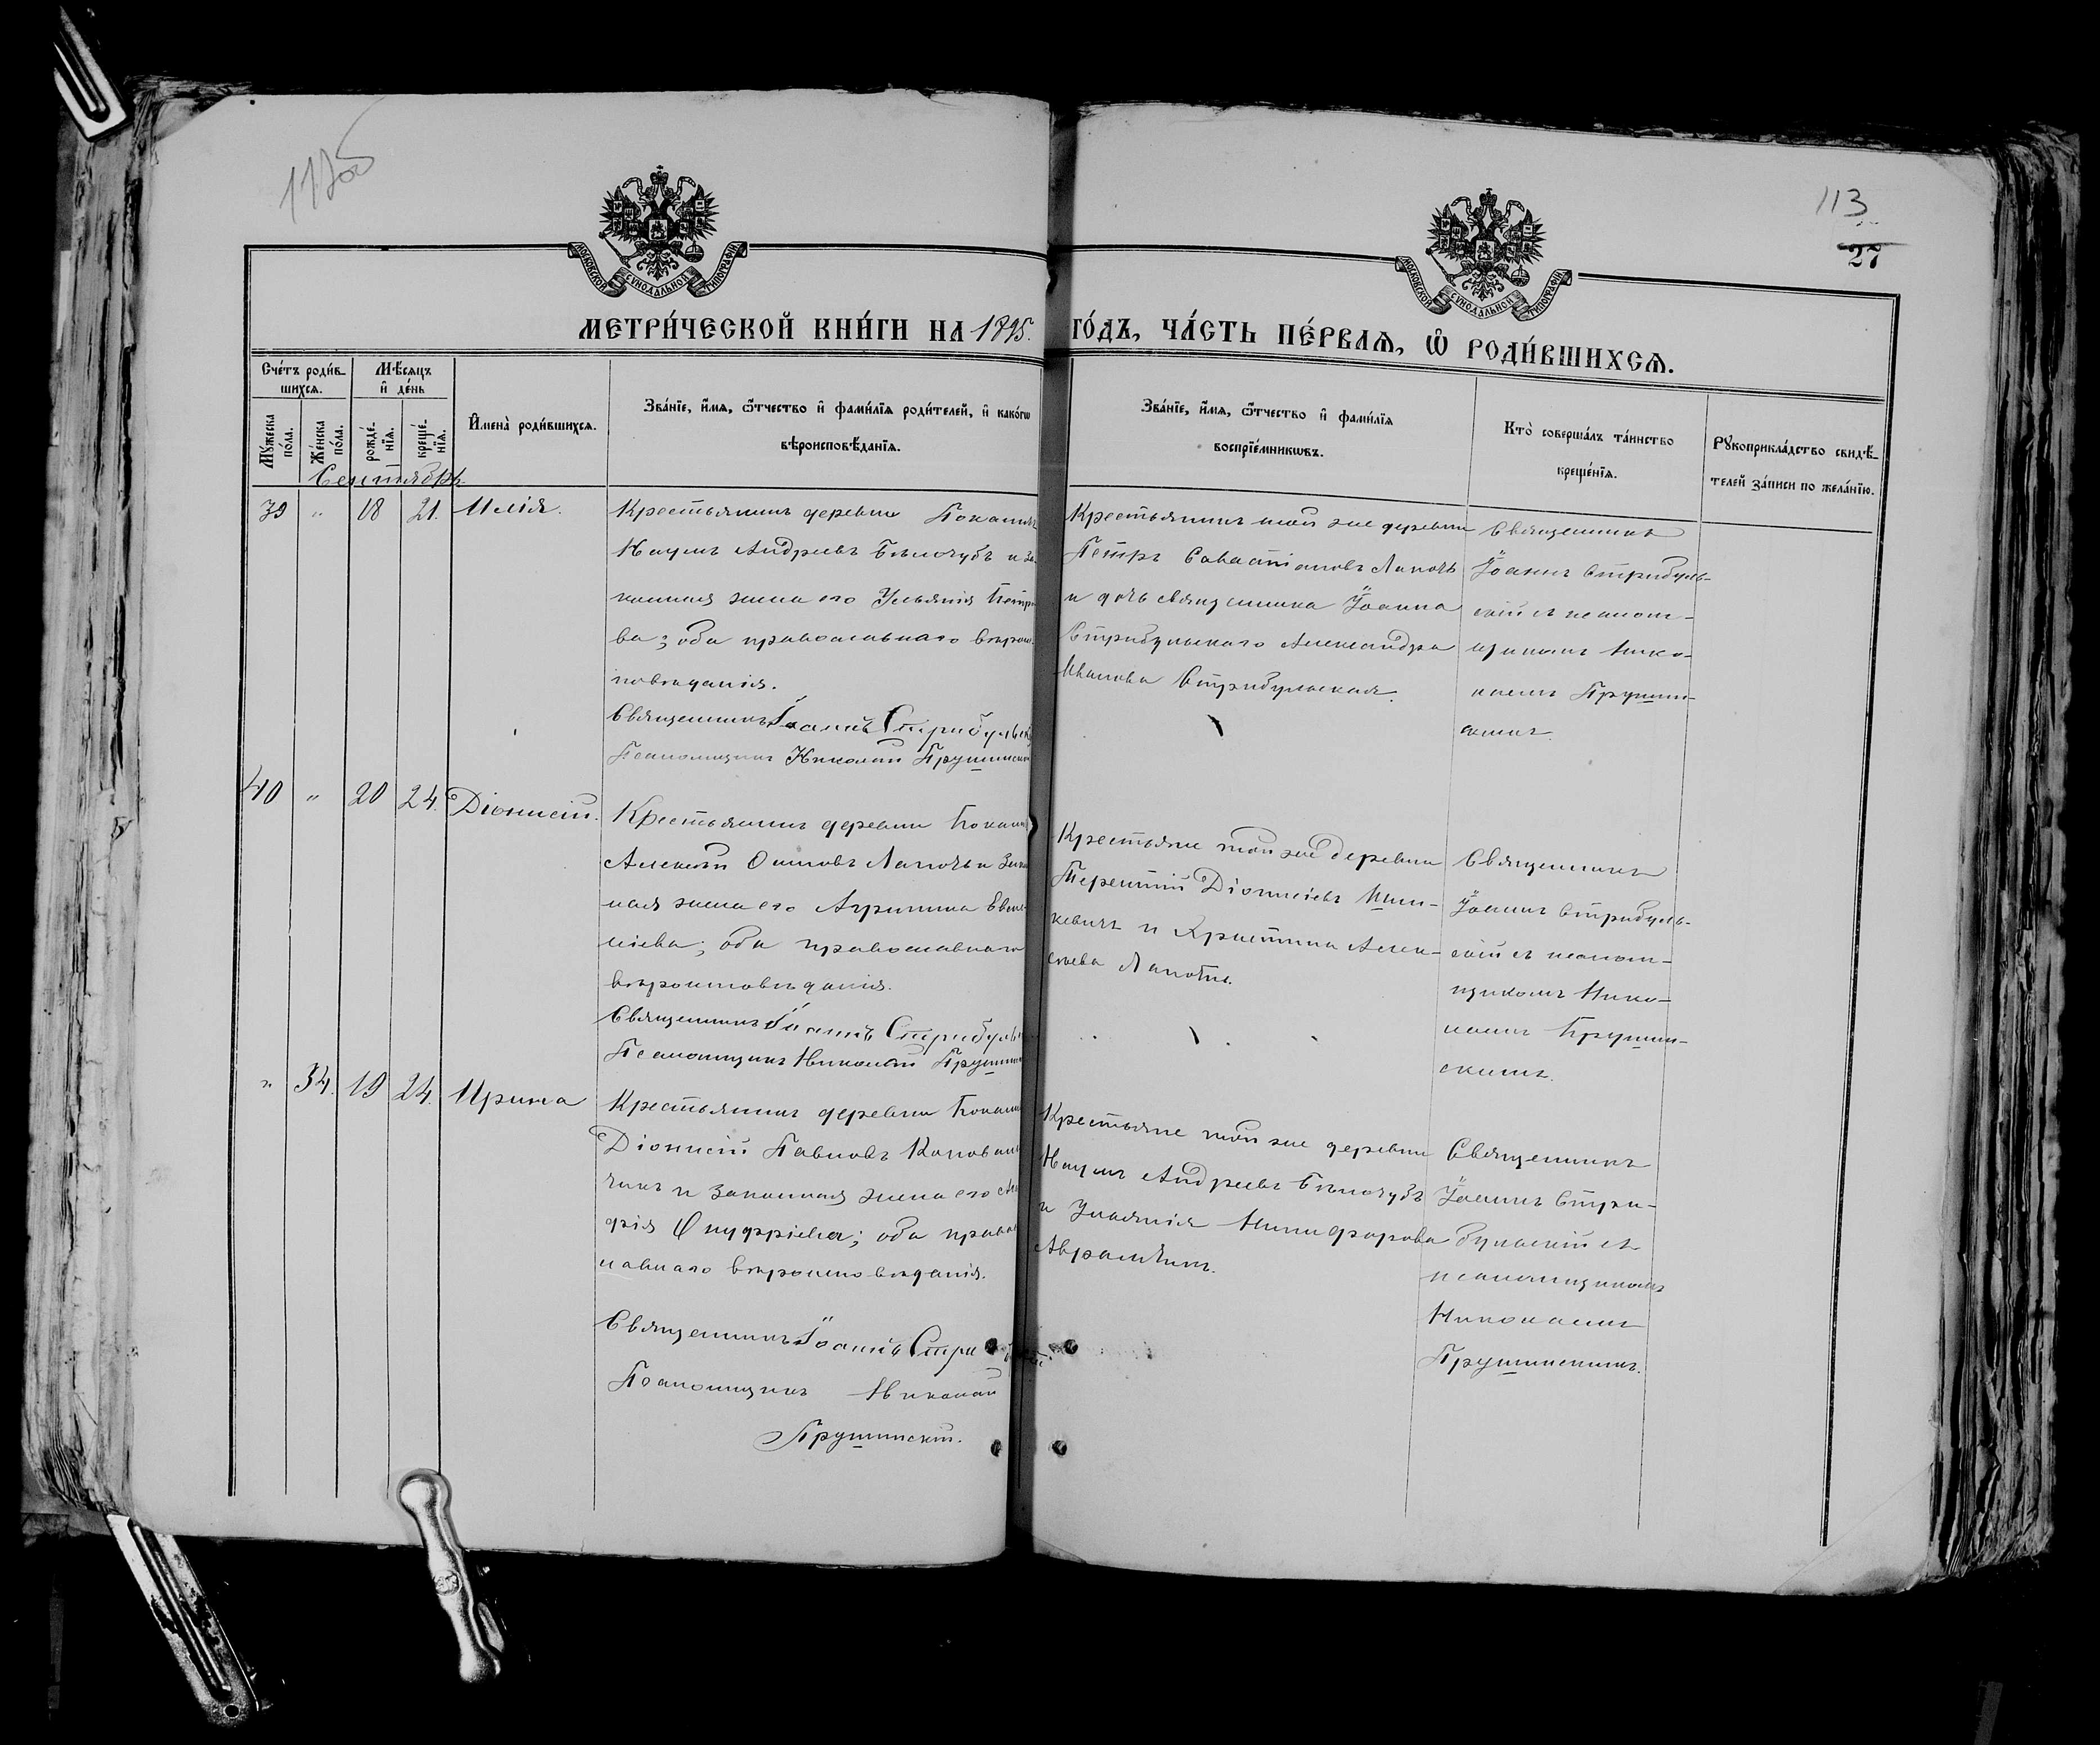 113
27
МОСКОВСКОЙ СѴНОДАЛЬНОЙ ТИПОГРАФІИ
МОСКОВСКОЙ СѴНОДАЛЬНОЙ ТИПОГРАФІИ
МЕТРИ́ЧЕСКОЙ КНИ́ГИ НА 1895. ГО́ДЪ, ЧА́СТЬ ПЕ́РВАѦ, Ѿ РОДИ́ВШИХСѦ.
Сче́тъ роди́в-
шихсѧ.
Мѣ́сѧцъ
и҆ де́нь
Мꙋ́жеска по́ла.
Же́нска по́ла.
рожде́-нїѧ.
креще́-нїѧ.
И҆мена̀ роди́вшихсѧ.
Зва́нїе, и҆́мѧ, ѻ҆́тчество и҆ фами́лїѧ роди́телей, и҆ како́гѡ
вѣроисповѣ́данїѧ.
Зва́нїе, и҆́мѧ, ѻ҆́тчество и҆ фами́лїѧ
воспрїе́мникѡвъ.
Кто̀ соверша́лъ та́инство
креще́нїѧ.
Рꙋкоприкла́дство свидѣ́-
телей за́писи по жела́нїю.
Сентябрь
39 " 18 21. Илія.
Крестьянинъ деревни
Наумъ Андреевъ Бѣлочубъ и за-
конная жена его Ульянія Петро-
ва; оба православнаго вѣроис-
повѣданія.
Священникъ Іоаннъ Стрибульскій
Псаломщикъ Николай Прушинскій
Крестьянинъ той же деревни
Петръ Савастіановъ Лапочъ
и дочь священника Іоанна
Стрибульскаго Александра
Иванова Стрибульская.
Священникъ
Іоаннъ Стрибуль-
скій съ псалом-
щикомъ Нико-
лаемъ Прушин-
скимъ.
40 " 20 24. Діонисій.
Крестьянинъ деревни
Алексѣй Осиповъ Лапочъ и закон
ная жена его Агрипина
оба православнаго
вѣроисповѣданія.
Священникъ Іоаннъ Стрибуль
Псаломщикъ Николай Прушин
Крестьяне той же деревни
Терентій Діонисіевъ Шин-
кевичъ и Христина Алек-
сѣева
Священникъ
Іоаннъ Стрибуль-
скій съ псалом-
щикомъ Нико-
лаемъ Прушин-
скимъ.
" 34. 19 24. Ирина
Крестьянинъ деревни
Діонисій Павловъ
и законная жена его
Онуфріева; оба право
славнаго вѣроисповѣданія.
Священникъ Іоаннъ Стри
Псаломщикъ Николай
Прушинскій.
Крестьяне той же деревни
Наумъ Андреевъ Бѣлочубъ
и Ульянія Никифорова
Священникъ
Іоаннъ Стри-
бульскій съ
псаломщикомъ
Николаемъ
Прушинскимъ.